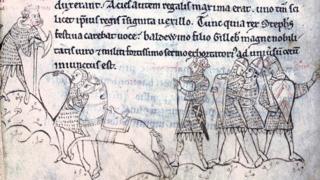 duxerant. Acies autem regalis maxima erat. uno tm̄ sci
licet ipsius regis insignita vexillo. Tunc quia rex Steph's
festiua carebat uoce: baldewino filio Gilleb' magne nobili
tatis uiro & militi fortissimo sermo exhortatorius ad uniuersū cetū
iniunctus est.